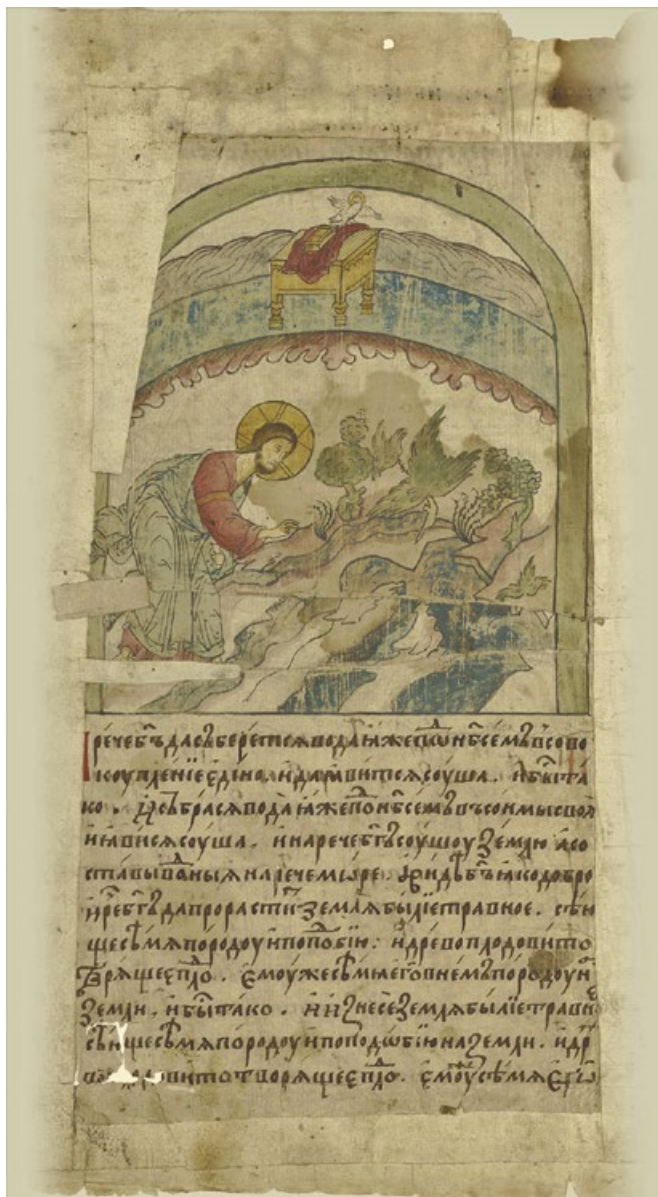 И рече бг҃ъ да съберется вода ꙗже под нбсемъ в сово
коупленїе едіно. и да ꙗвится соуша. и бы́ та́
ко. и събрася вода ꙗже по нбсемъ въ сонмы своя
и ꙗвися соу́ша. и нарече бг҃ъ соушоу землю а со
ставы водныя нарече мѡре. и видѣ бг҃ъ ꙗко добро
и рече бг҃ъ да прорасти́т земля былїе травное. сѣю
щее сѣмя по родоу и по подо́бїю: и древо плодовито
творящее пло. емоу же сѣмя его в нем по родоу на
земли. и бы́ та́ко. и изнесе земля былїе травн
сѣющее сѣмя по родоу и по подѡбїю на земли. и др
во плодовито творящее пло. емоу сѣмя егѡ